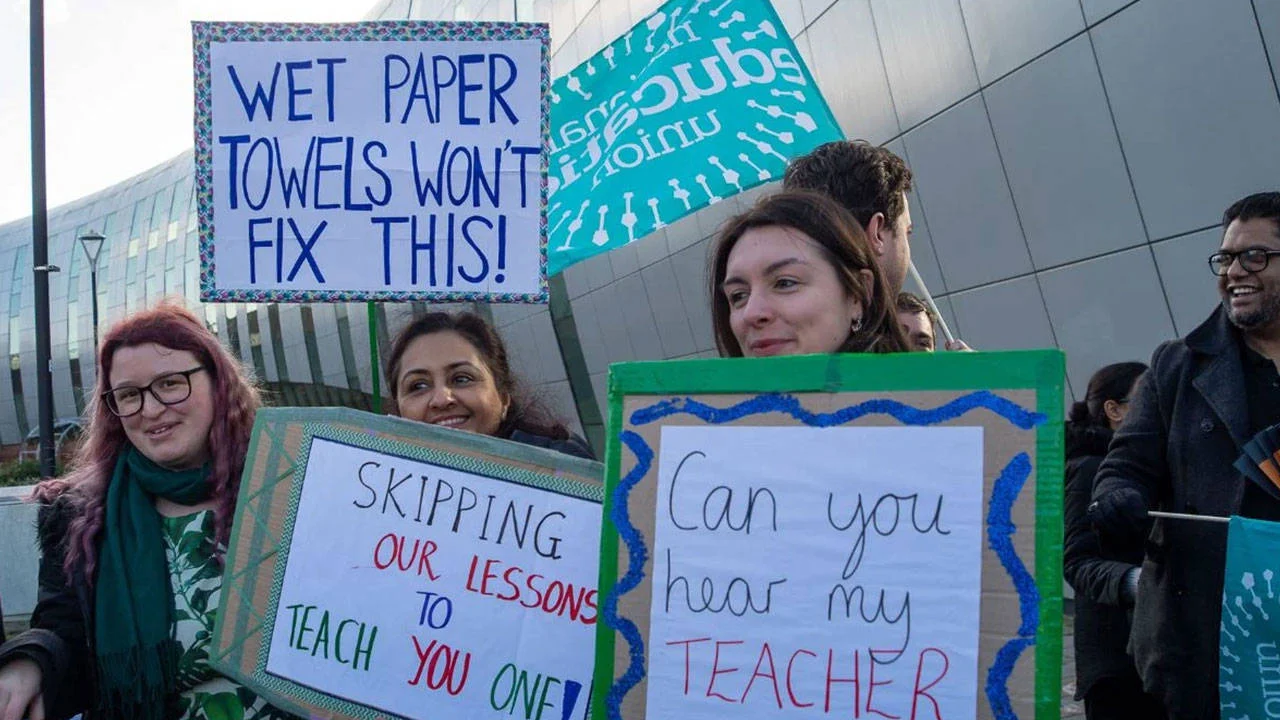 WET PAPER
TOWELS WON'T
FIX THIS!
educa
union
SKIPPING
OUR LESSONS
TO
TEACH YOU ONE!
Can you
hear my
TEACHER